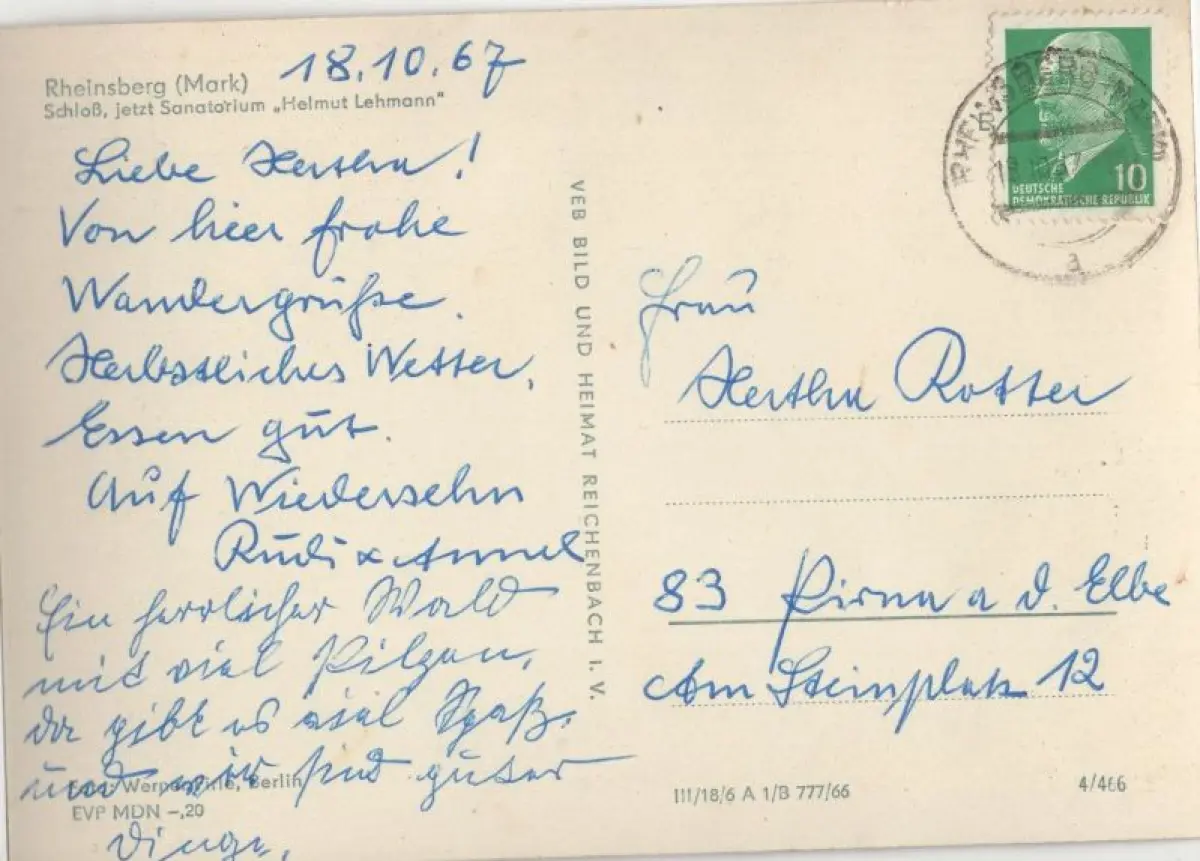 18.10.67
Rheinsberg (Mark)
Schloß, jetzt Sanatorium „Helmut Lehmann"
Liebe Hertha!
Von hier frohe
Wandergrüße.
Herbstliches Wetter,
Essen gut.
Auf Wiedersehn
Rudi &
Ein herrlicher Wald
mit viel Pilzen,
da gibt es viel Spaß.
und wir sind guter
Dinge.
Berlin
EVP MDN –,20
VEB BILD UND HEIMAT REICHENBACH I. V.
RHEINSBERG (MARK)
a
10
DEUTSCHE
DEMOKRATISCHE REPUBLIK
Frau
Hertha Rotter
83 Pirna a d. Elbe
Am Steinplatz 12
III/18/6 A 1/B 777/66
4/466